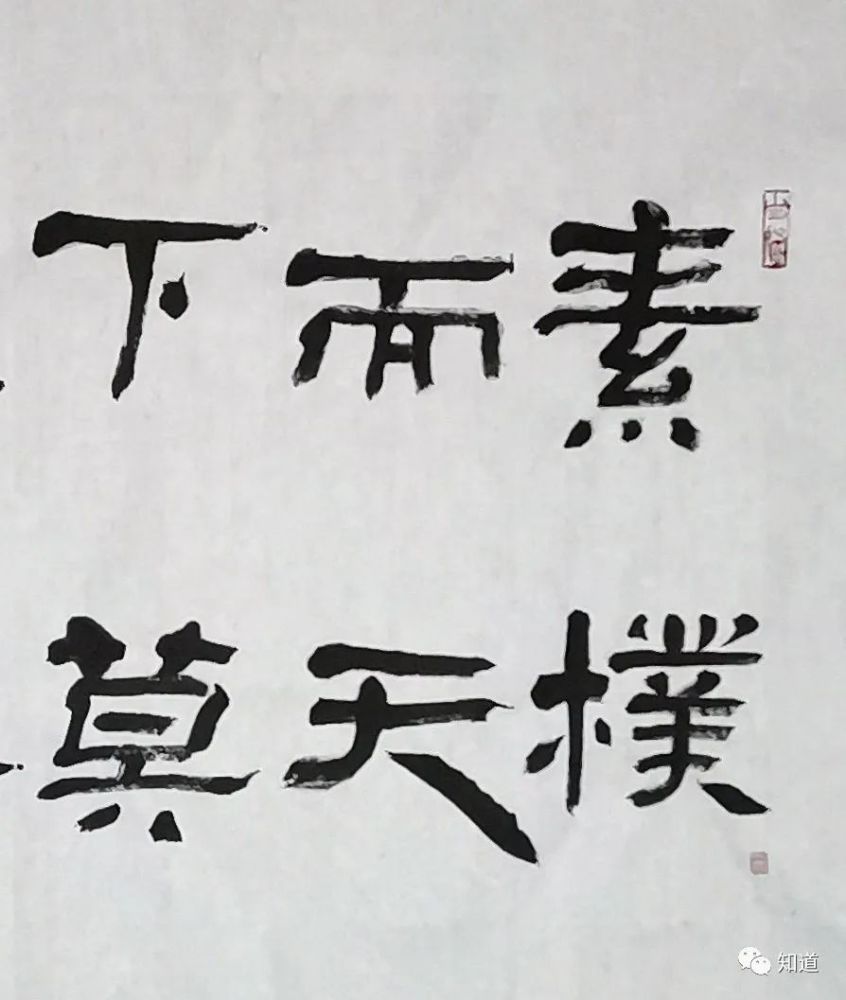 素樸
而天
下莫
知道